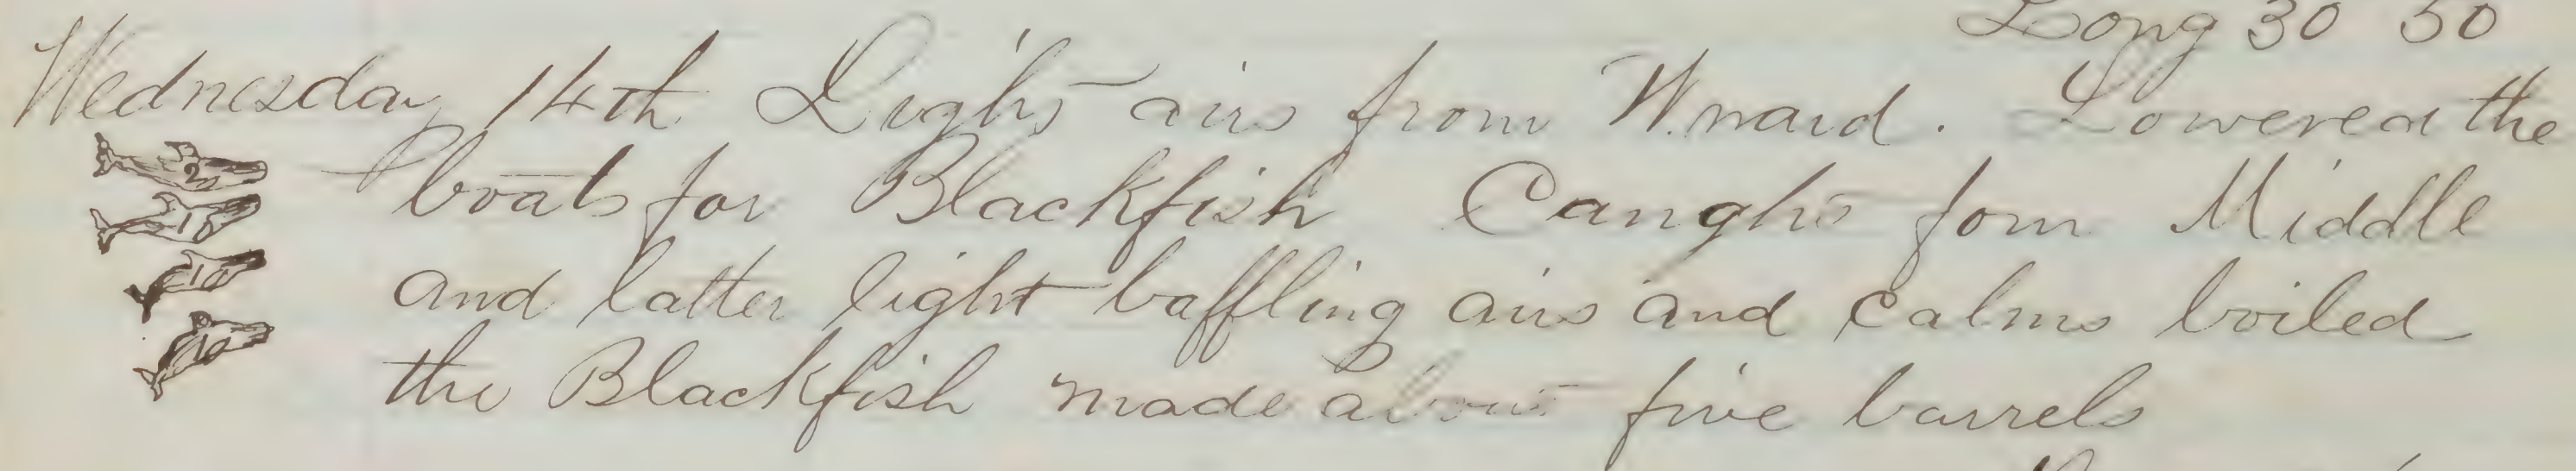 Long 30 50
Wednesday 14th Light airs from W.ward. Lowered the
boats for Blackfish Caught four Middle
and latter light baffling airs and calms boiled
the Blackfish made about five barrels
2
1
10
10